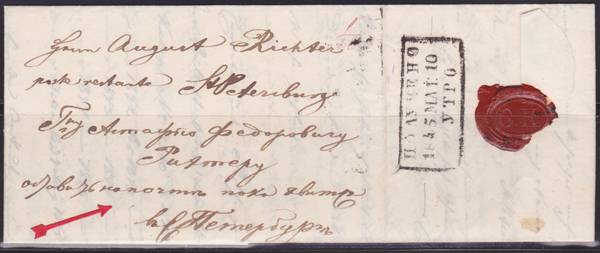 Herrn August Richter
poste restante St Petersburg
Гну Астафью Федоровичу
Рихтеру
оставить на почте пока явится
въ С Петербургъ
ПОЛУЧЕНО
1845 МАІ. 10
УТРО